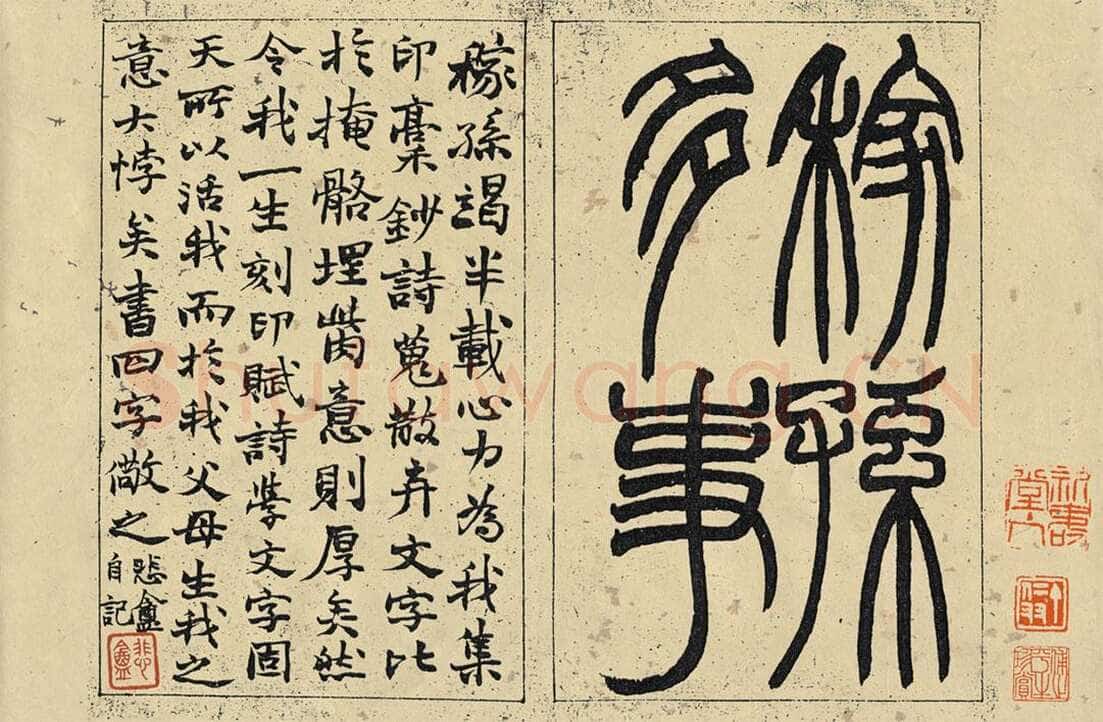 稼孫
多事
稼孫竭半載心力為我集
印稾鈔詩蒐散弃文字比
於掩骼埋胔意則厚矣然
令我一生刻印賦詩學文字固
天所以活我而於我父母生我之
意大悖矣書四字儆之
悲盦
自記
悲盦
Shufawang.CN